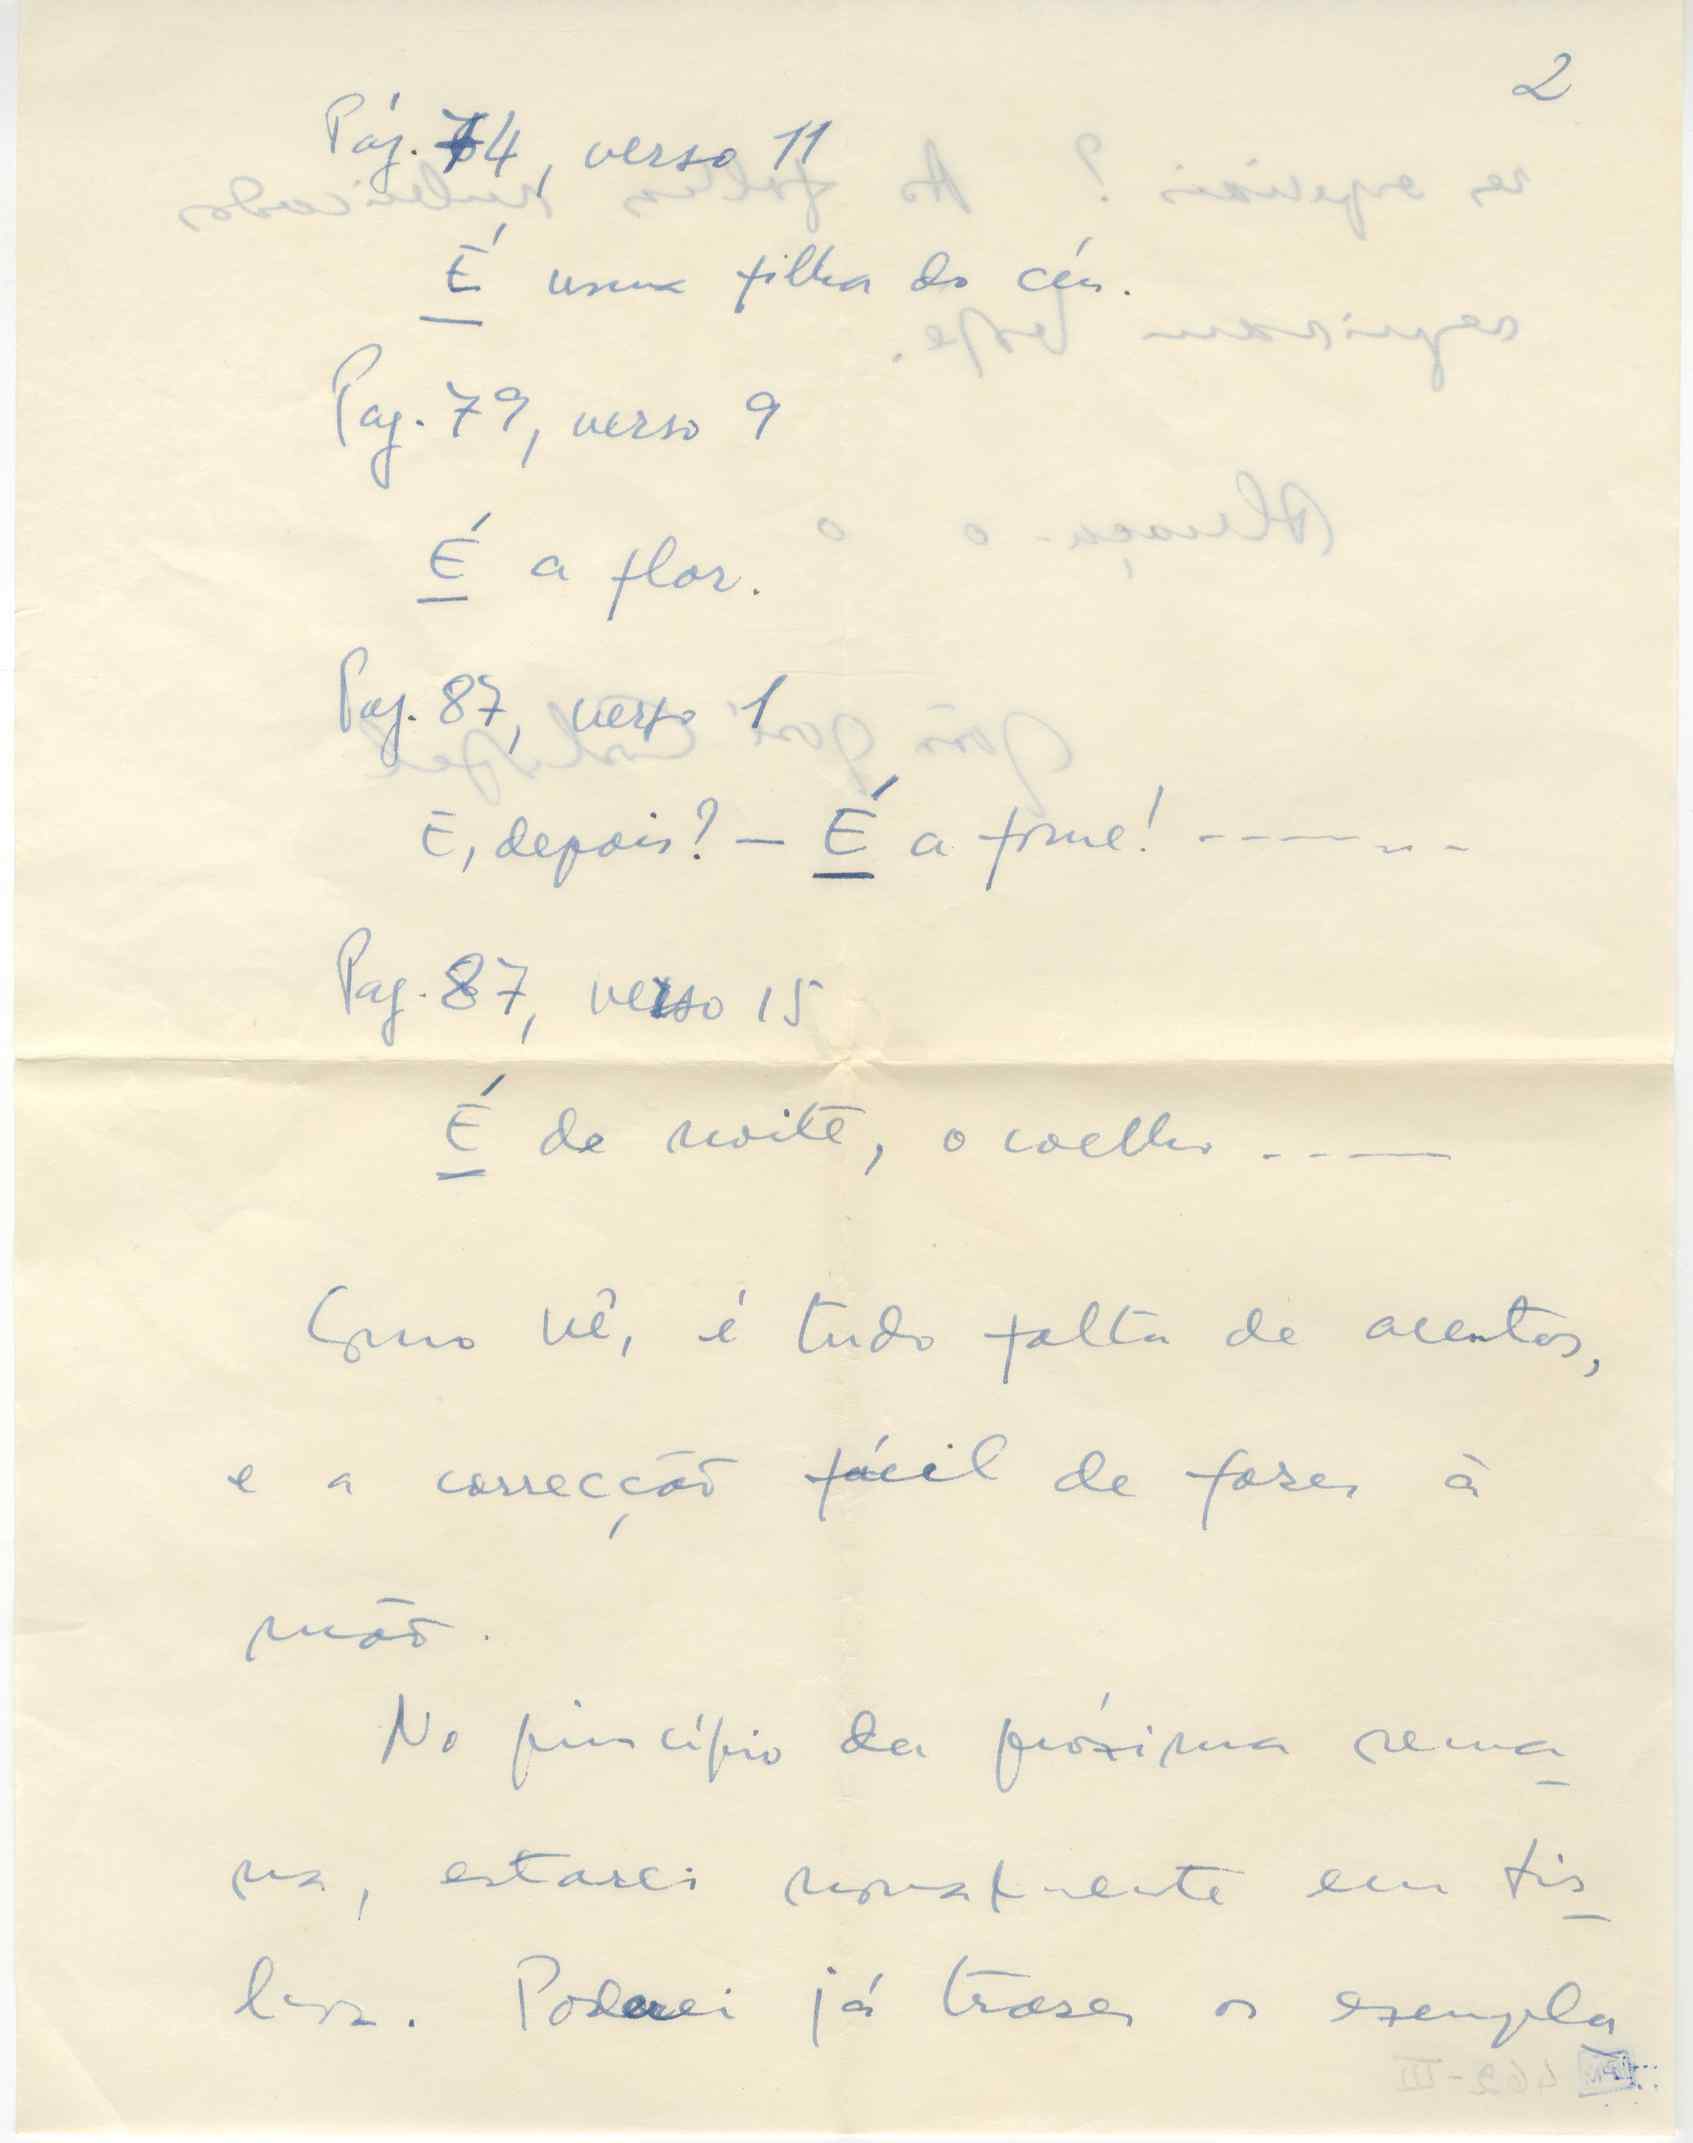 2
Pág. 74, verso 11
É uma filha do céu.
Pag. 79, verso 9
É a flor.
Pag. 87, verso 1
E, depois? — É a fome! -------
Pag. 87, verso 15
É de noite, o coelho -----
Como vê, é tudo falta de acentos,
e a correcção fácil de fazer à
mão.
No princípio da próxima sema-
na, estarei novamente em Lis-
boa. Poderei já trazer os exempla